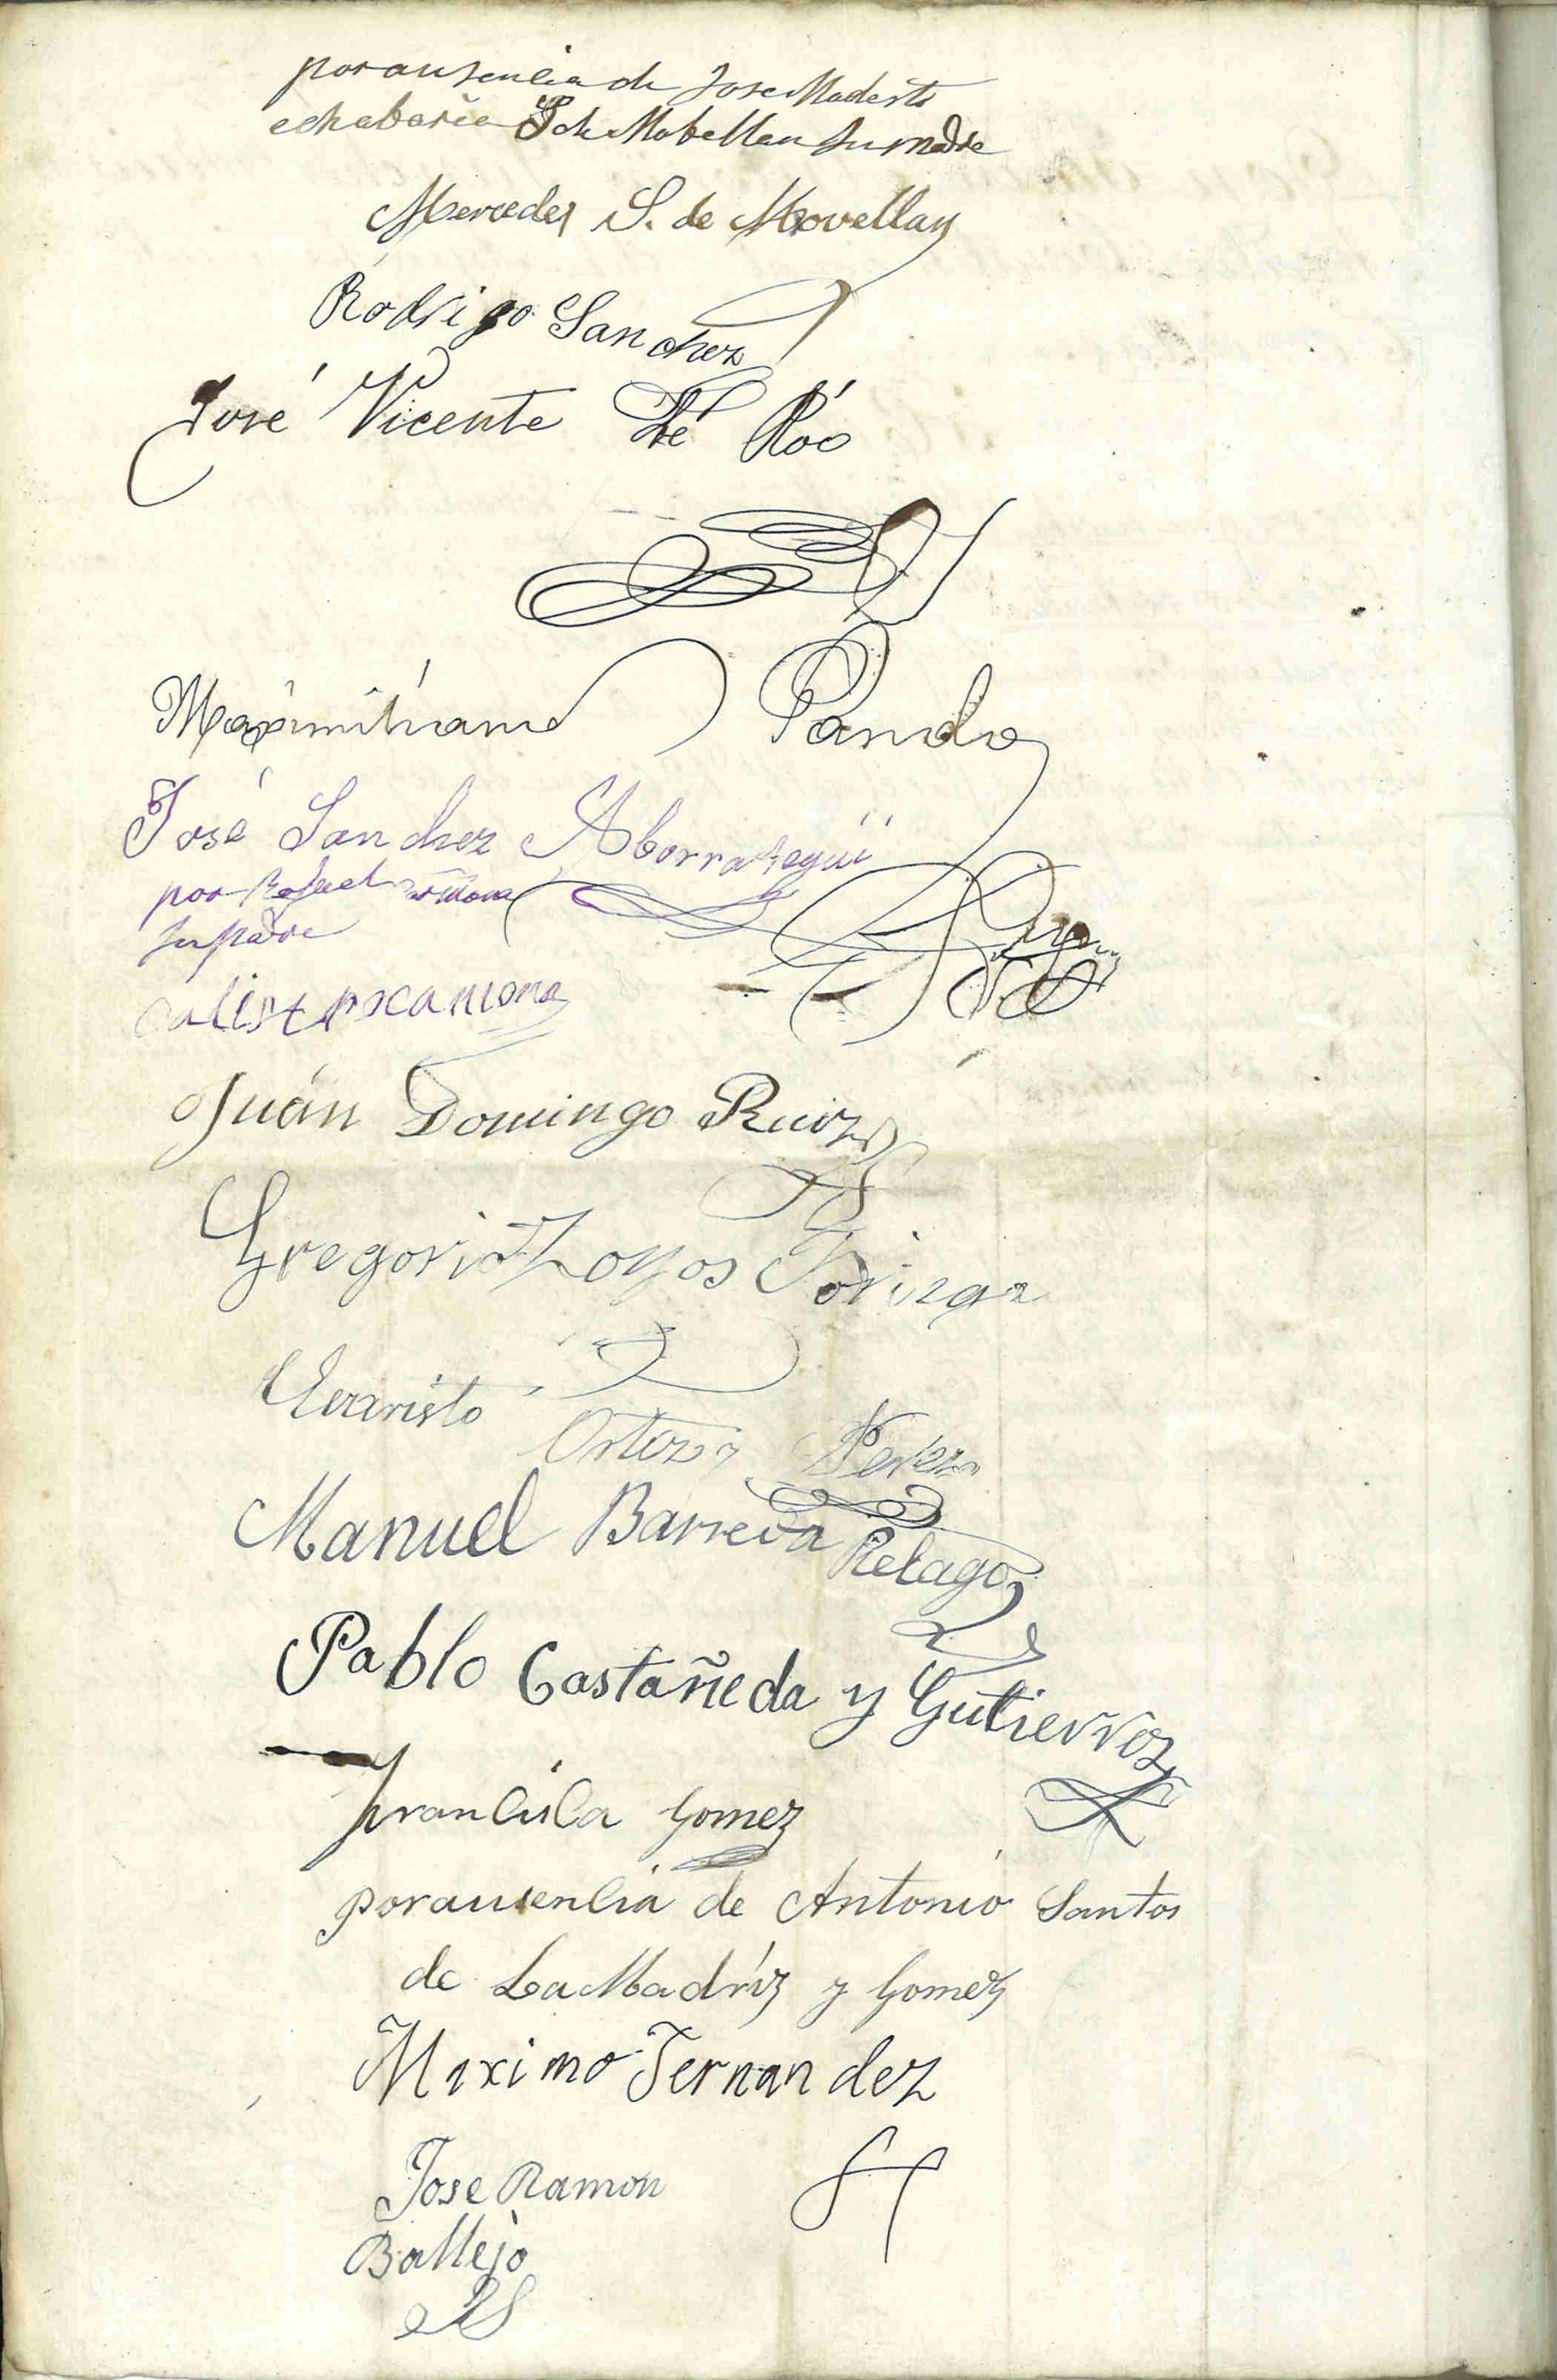 por ausencia de Jose Modesto
echabaria S de Mobellan su madre
Mercedes S. de Movellan
Rodrigo Sanchez
José Vicente De Rio
Maximiliano Pando
José Sanchez Aborrategui
por Rafael
su padre
Juán Domingo Ruiz
Gregorio Hoyos
Evaristo Ortiz y Perez
Manuel Barreda Relago
Pablo Castañeda y Gutierrez
Francisca Gomez
por ausencia de Antonio Santos
de La Madríz y Gomez
Maximo Fernandez
Jose Ramon
Ballejo